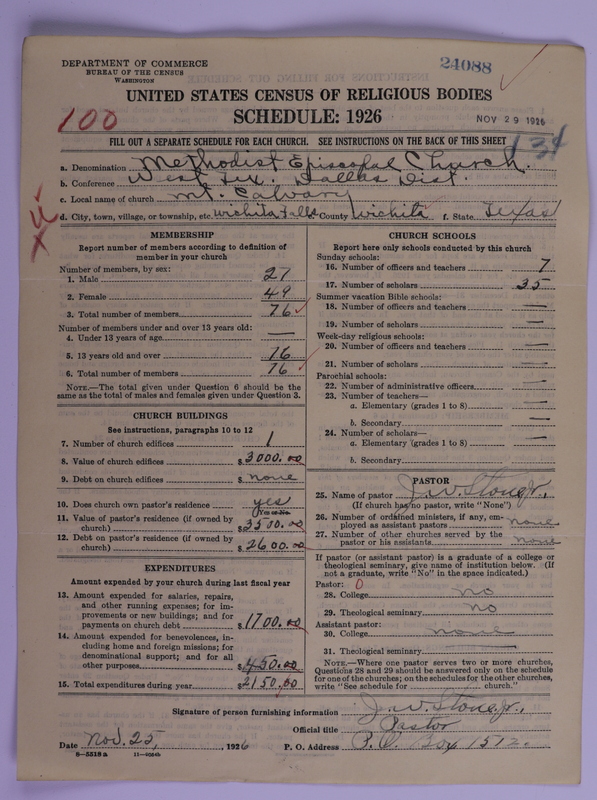 DEPARTMENT OF COMMERCE
BUREAU OF THE CENSUS
WASHINGTON
24088
UNITED STATES CENSUS OF RELIGIOUS BODIES
100
SCHEDULE: 1926
NOV 29 1926
FILL OUT A SEPARATE SCHEDULE FOR EACH CHURCH. SEE INSTRUCTIONS ON THE BACK OF THIS SHEET
a. Denomination Methodist Episcopal Church.
b. Conference West Tex. Dallas Dist.
c. Local name of church Mt. Calvary
d. City, town, village, or township, etc. Wichita Falls County Wichita f. State Texas
MEMBERSHIP
Report number of members according to definition of
member in your church
Number of members, by sex:
1. Male 27
2. Female 49
3. Total number of members 76
Number of members under and over 13 years old:
4. Under 13 years of age —
5. 13 years old and over 76
6. Total number of members 76
NOTE.—The total given under Question 6 should be
the same as the total of males and females given under Question 3.
CHURCH BUILDINGS
See instructions, paragraphs 10 to 12
7. Number of church edifices 1
8. Value of church edifices $3000.00
9. Debt on church edifices $ none
10. Does church own pastor's residence yes
Yes or No.
11. Value of pastor's residence (if owned by
church) $3500.00
12. Debt on pastor's residence (if owned by
church) $2600.00
EXPENDITURES
Amount expended by your church during last fiscal year
13. Amount expended for salaries, repairs,
and other running expenses; for im-
provements or new buildings; and for
payments on church debt $1700.00
14. Amount expended for benevolences, in-
cluding home and foreign missions; for
denominational support; and for all
other purposes $450.00
15. Total expenditures during year $2150.00
CHURCH SCHOOLS
Report here only schools conducted by this church
Sunday schools:
16. Number of officers and teachers 7
17. Number of scholars 35
Summer vacation Bible schools:
18. Number of officers and teachers —
19. Number of scholars —
Week-day religious schools:
20. Number of officers and teachers —
21. Number of scholars —
Parochial schools:
22. Number of administrative officers —
23. Number of teachers—
a. Elementary (grades 1 to 8) —
b. Secondary —
24. Number of scholars—
a. Elementary (grades 1 to 8) —
b. Secondary
PASTOR
25. Name of pastor J. W. Stone, Jr.,
(If church has no pastor, write "None")
26. Number of ordained ministers, if any, em-
ployed as assistant pastors none
27. Number of other churches served by the
pastor or his assistants none
If pastor (or assistant pastor) is a graduate of a college or
theological seminary, give name of institution below. (If
not a graduate, write "No" in the space indicated.)
Pastor: 0
28. College no
29. Theological seminary no
Assistant pastor:
30. College none
31. Theological seminary
NOTE.—Where one pastor serves two or more churches,
Questions 28 and 29 should be answered only on the schedule
for one of the churches; on the schedules for the other churches,
write "See schedule for church."
Signature of person furnishing information J. W. Stone, Jr.,
Official title Pastor
Date Nov. 25, 1926 P. O. Address P.O. Box 1512.
8—5518 a